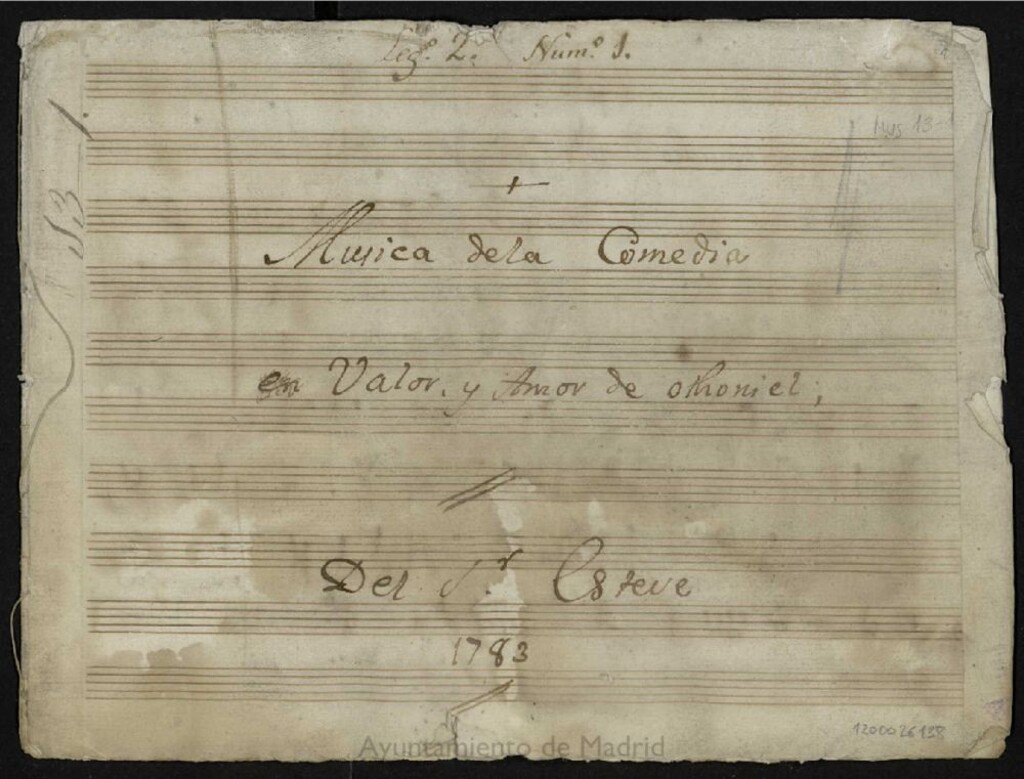 Leg.º 2. Num.º 1.
Mus 19-1
+
Musica dela Comedia
en Valor, y Amor de othoniel;
Del S.r Esteve
1783
1200026138
Ayuntamiento de Madrid